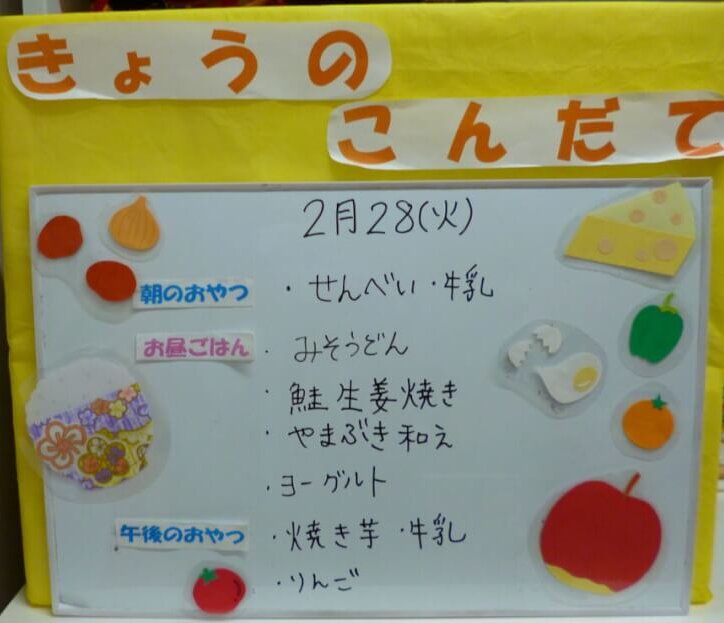 きょうの
こんだて
2月28(火)
朝のおやつ ・せんべい ・牛乳
お昼ごはん ・みそうどん
・鮭生姜焼き
・やまぶき和え
・ヨーグルト
午後のおやつ ・焼き芋 ・牛乳
・りんご